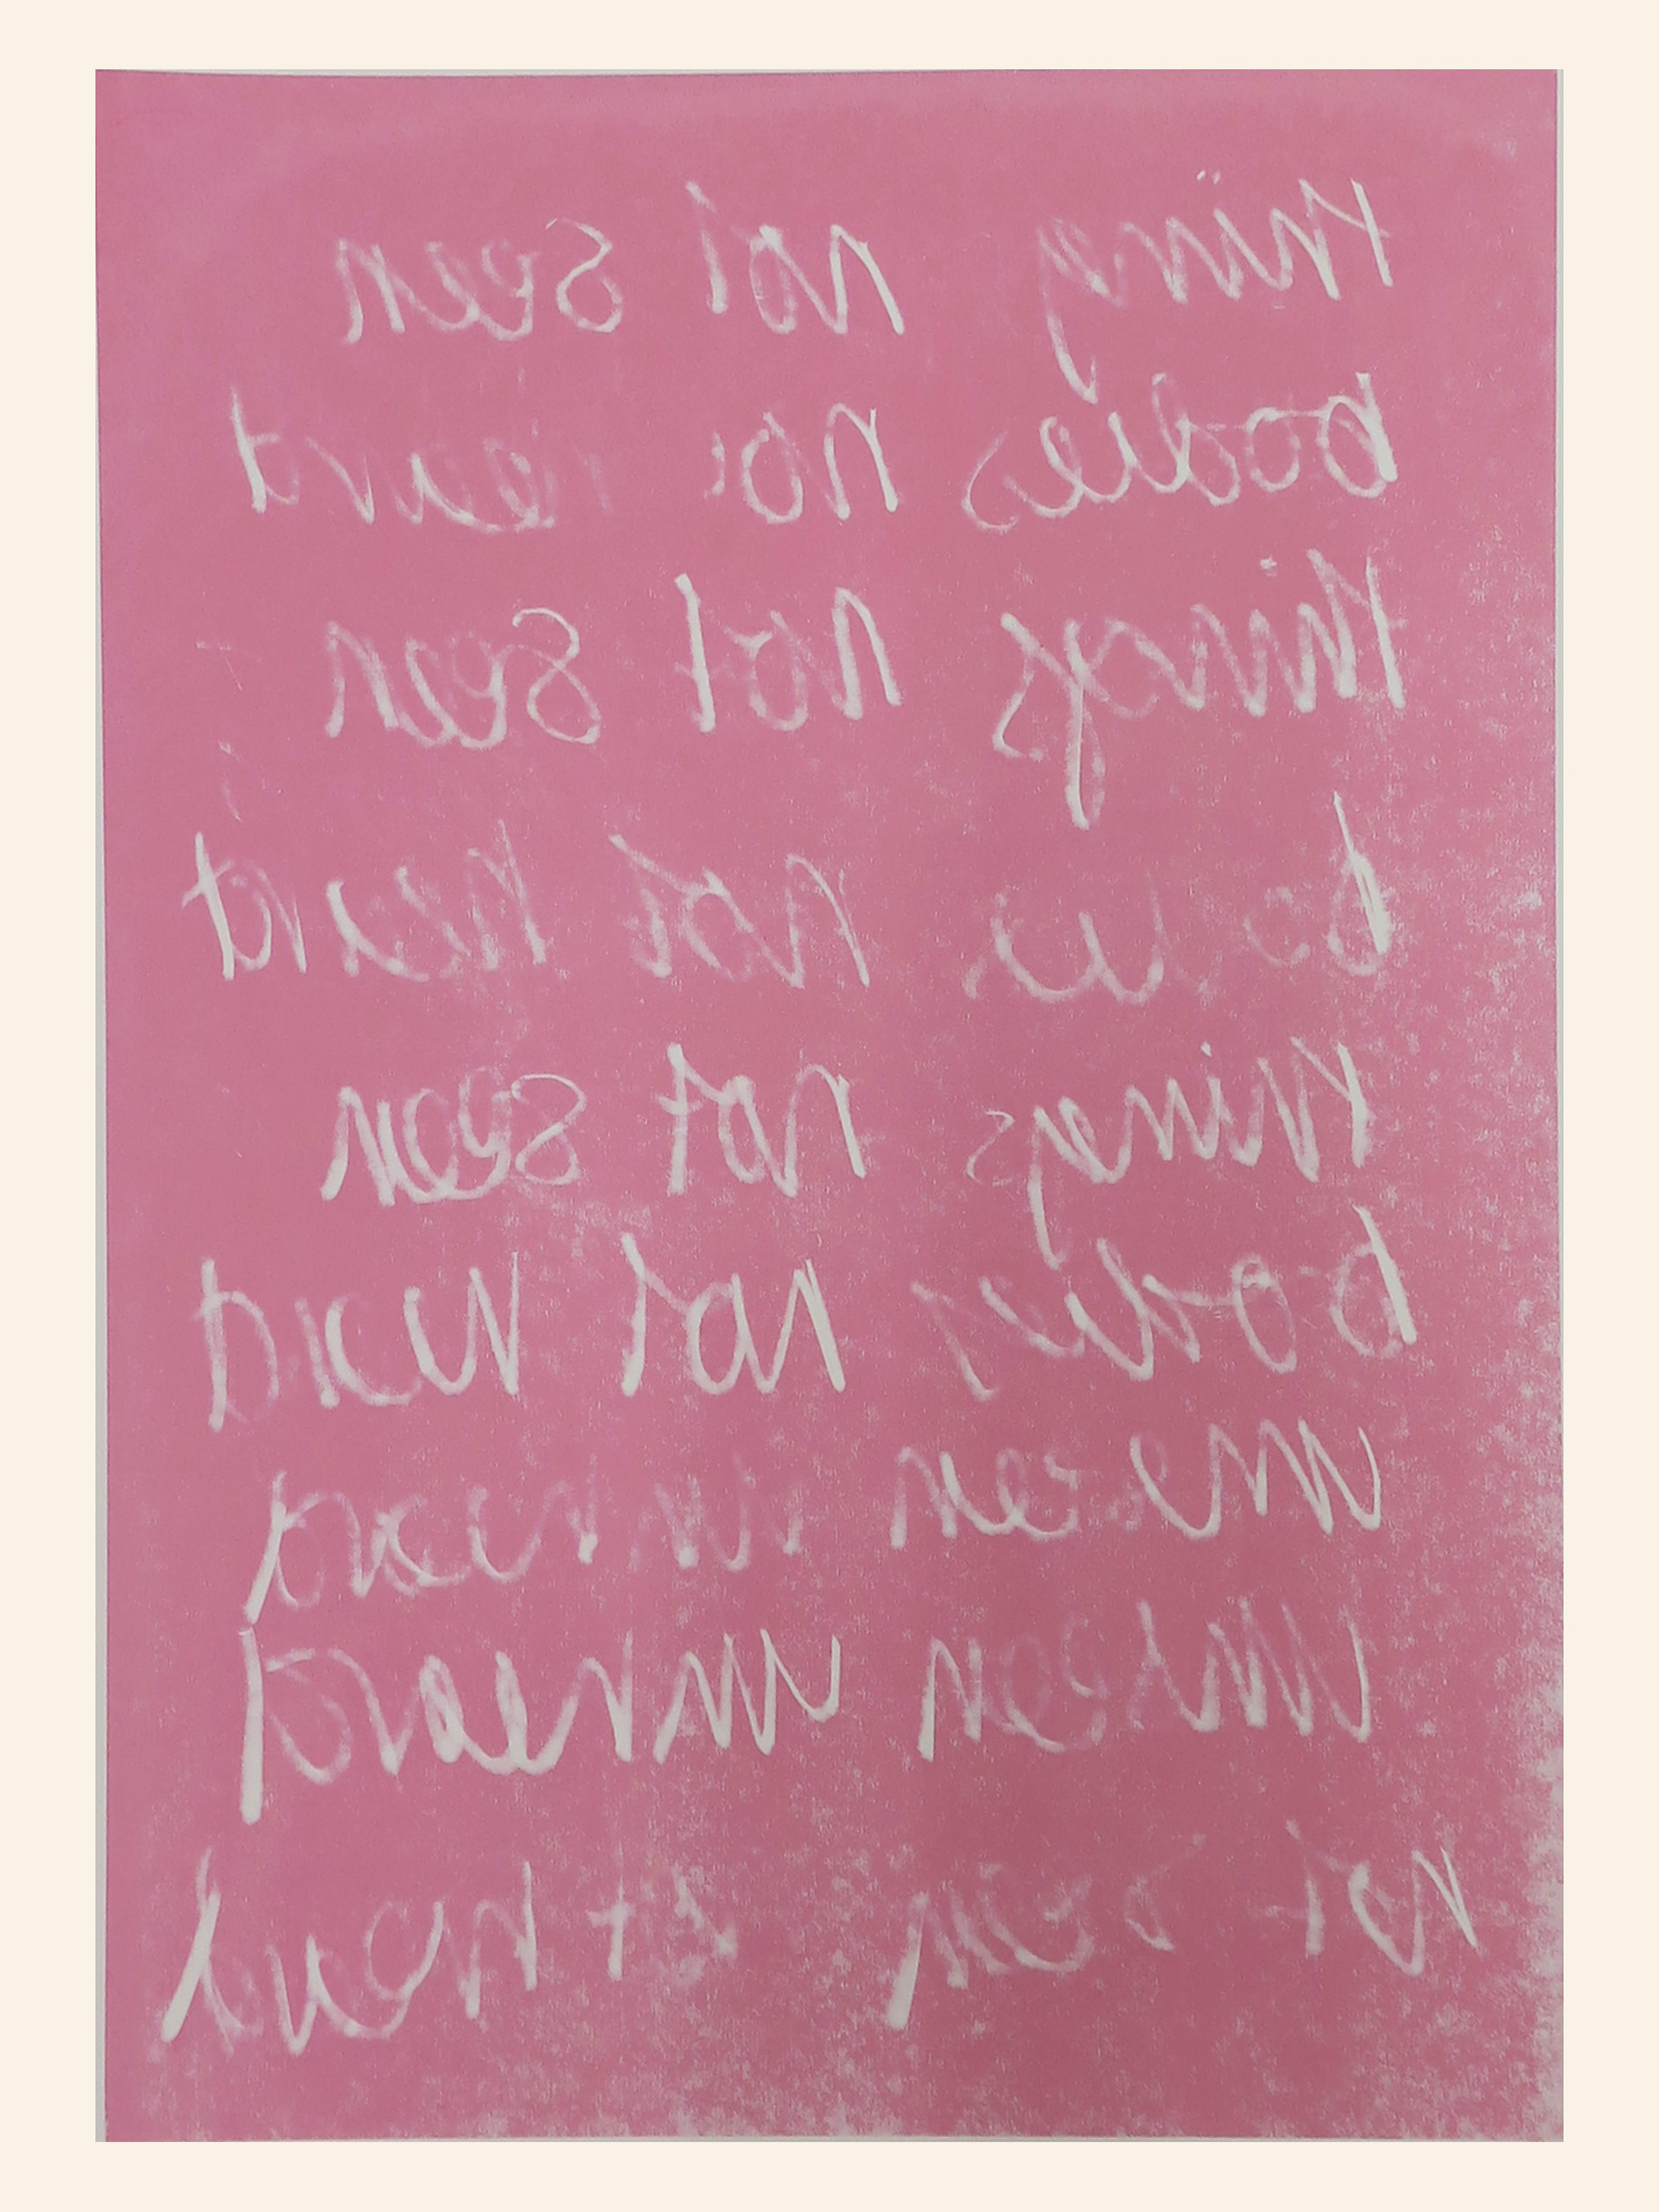 thing not seen
bodies not heard
things not seen
bodies not heard
things not seen
bodies not heard
unseen unheard
unseen unheard
not seen heard